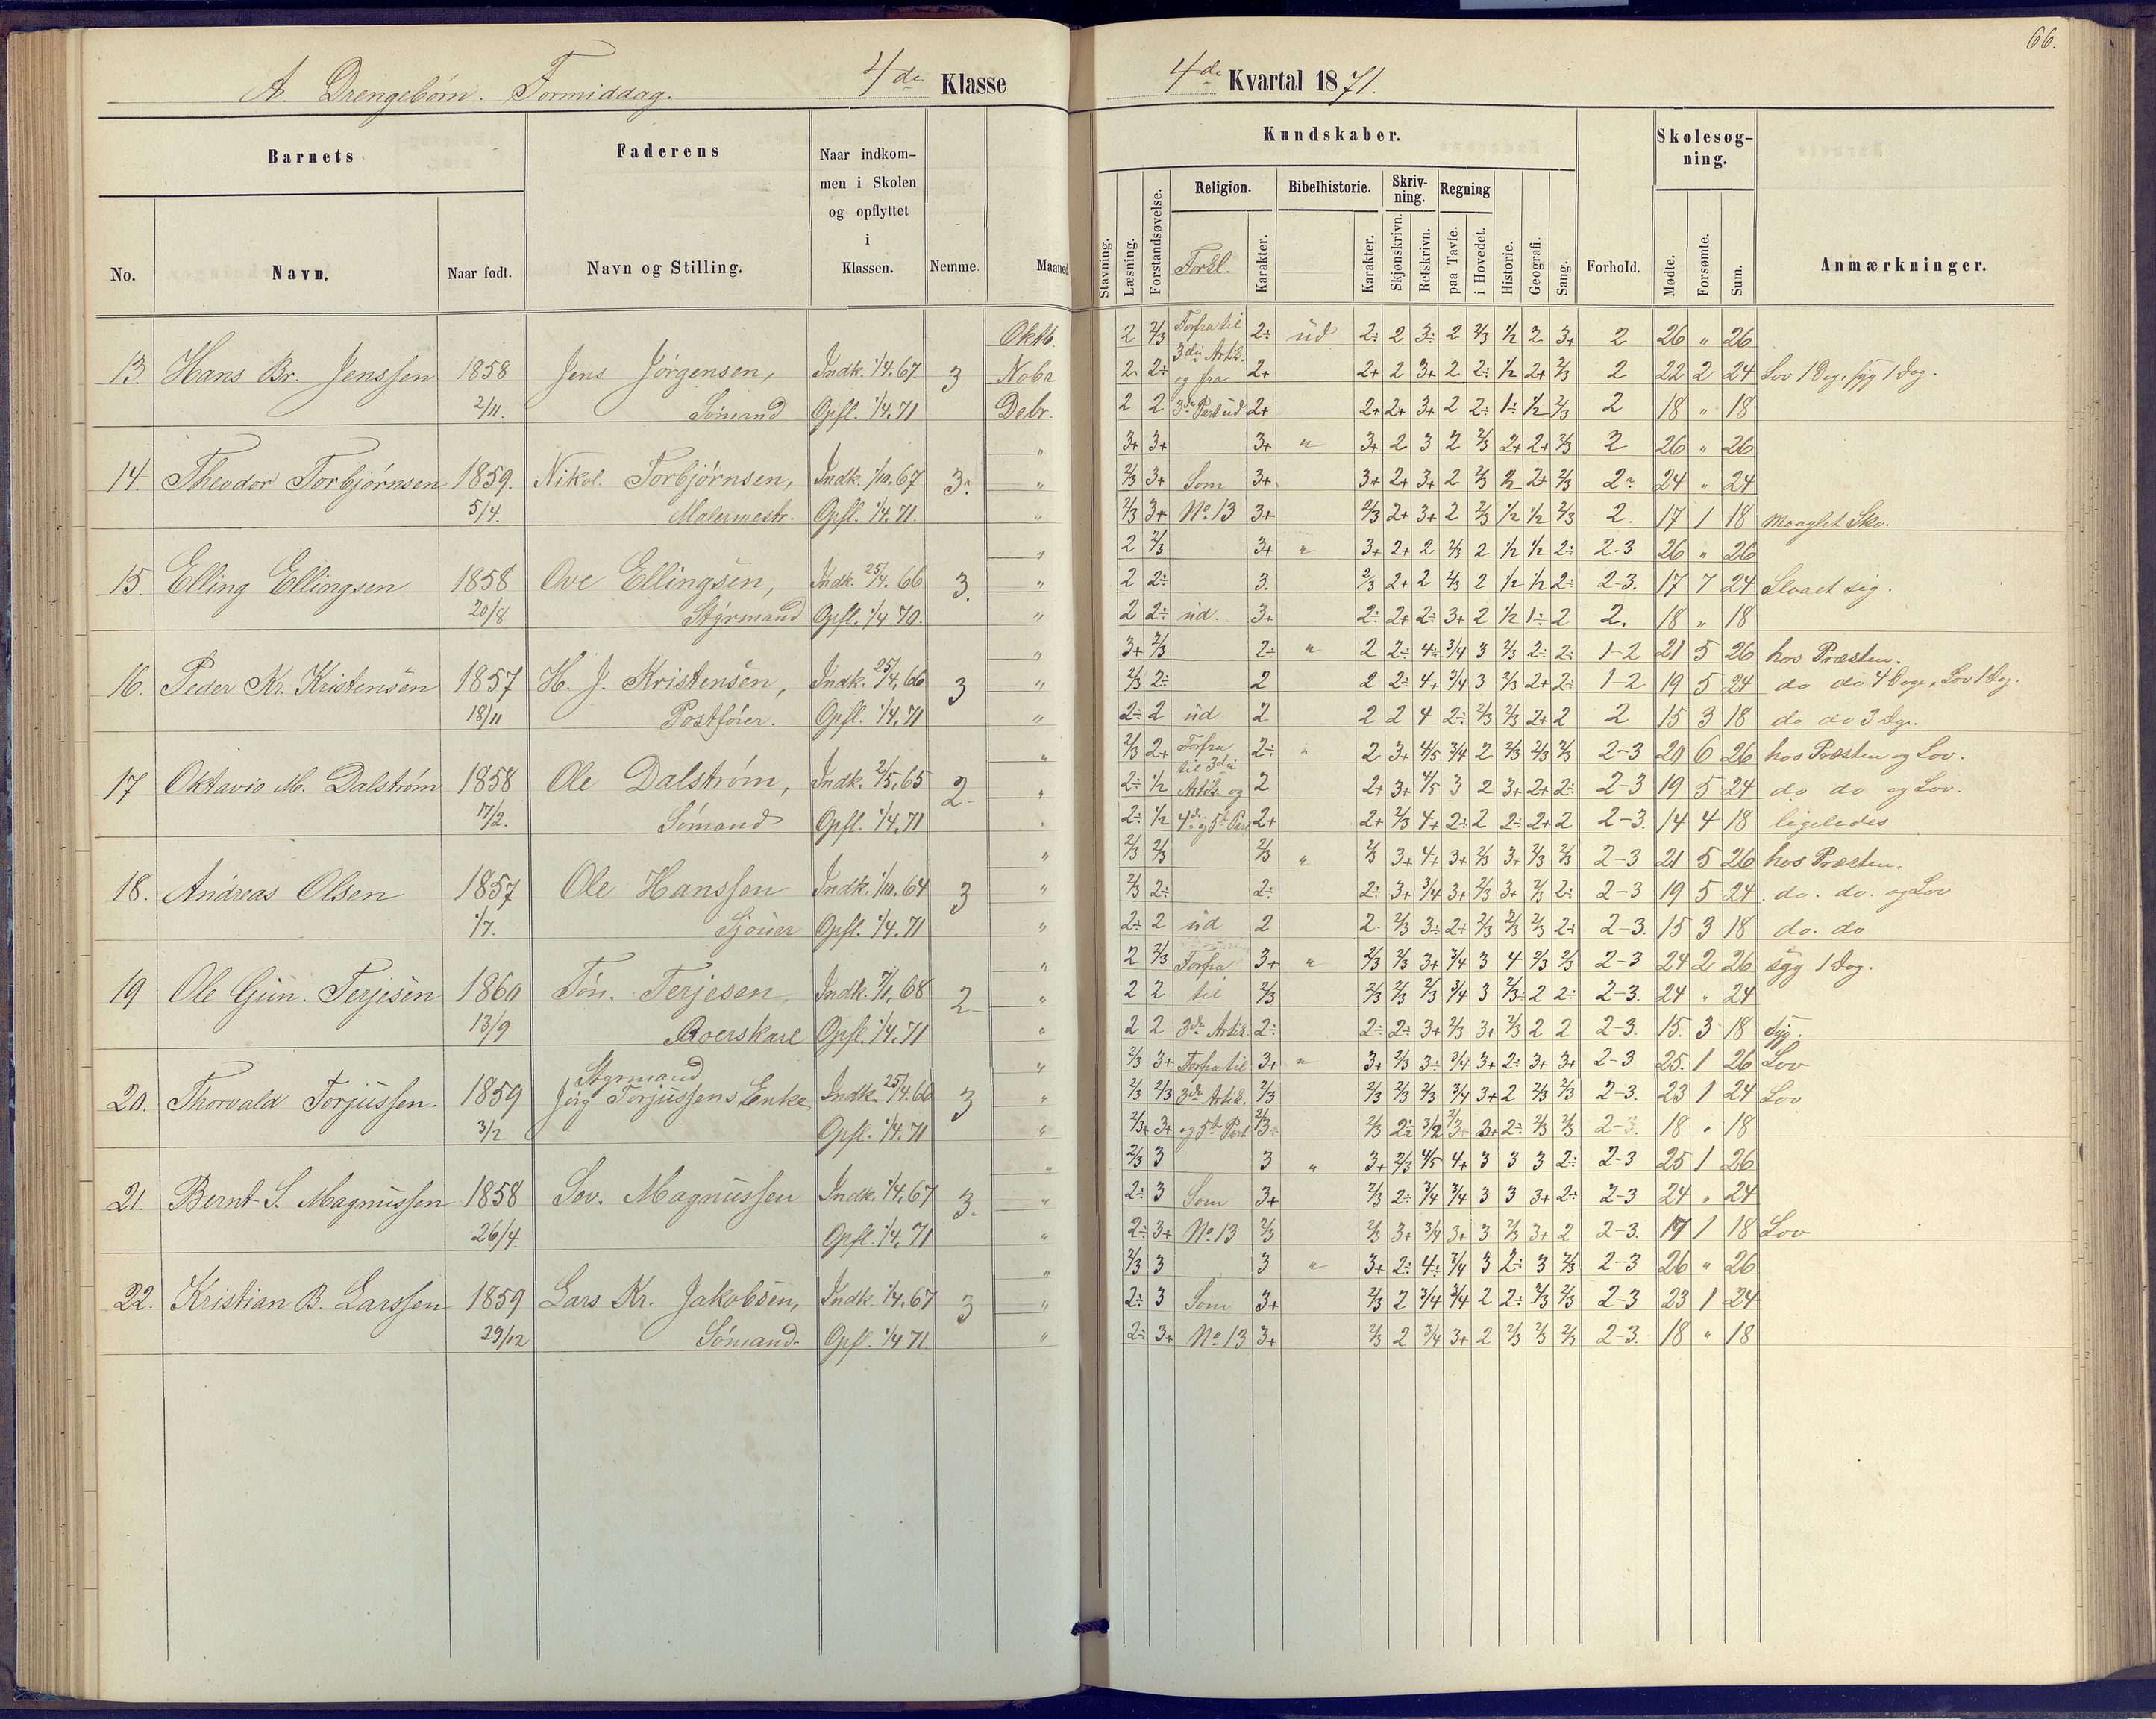 66.
A. Drengebørn. Formiddag. 4de Klasse 4de Kvartal 1871.
Barnets Faderens Naar indkom- Kundskaber. Skolesøg-
men i Skolen ning.
og opflyttet Religion. Bibelhistorie. Skriv- Regning
i ning.
No. Navn. Naar født. Navn og Stilling. Klassen. Nemme. Maaned Stavning. Læsning. Forstandsøvelse. Forkl. Karakter. Karakter. Skjønskrivn. Retskrivn. paa Tavle. i Hovedet. Historie. Geografi. Sang. Forhold. Mødte. Forsømte. Sum. Anmærkninger.
Oktb. 2 2/3 Forfra til 2÷ ud 2÷ 2 3÷ 2 2/3 1/2 2 3+ 2 26 " 26
13. Hans Br. Jenssen 1858 Jens Jørgensen, Indk. 1/4.67 3 Nobr 2 2÷ 3die Artik. og fra 2+ 2+ 2 3+ 2 2÷ 1/2 2+ 2/3 2 22 2 24 Lov 1 Dag, syg 1 Dag.
2/11. Sømand Opfl. 1/4.71 Debr. 2 2 3de Part ud 2+ 2+ 2+ 3+ 2 2÷ 1÷ 1/2 2/3 2 18 " 18
" 3+ 3+ 3+ " 3+ 2 3 2 2/3 2+ 2+ 2/3 2 26 " 26
14. Theodor Torbjørnsen 1859. Nikol. Torbjørnsen, Indk. 1/10.67 3. " 2/3 3+ Som 3+ 3+ 2+ 3+ 2 2/3 1/2 2+ 2/3 2 24 " 24
5/4. Malermestr. Opfl. 1/4.71. " 2/3 3+ No 13 3+ 2/3 2+ 3+ 2 2/3 1/2 1/2 2/3 2. 17 1 18 Manglet Sko.
" 2 2/3 3+ " 3+ 2+ 2 2/3 2 1/2 1/2 2÷ 2-3 26 " 26
15. Elling Ellingsen 1858 Ove Ellingsen, Indk. 25/4.66 3. " 2 2÷ 3. 2/3 2+ 2 2/3 2 1/2 1/2 2÷ 2-3. 17 7 24 Slaaet sig.
20/8 Styrmand Opfl. 1/4 70. " 2 2÷ ud. 3+ 2÷ 2+ 2÷ 3+ 2 1/2 1÷ 2 2. 18 " 18
" 3+ 2/3 2÷ " 2 2÷ 4÷ 3/4 3 2/3 2÷ 2÷ 1-2 21 5 26 hos Præsten.
16. Peder Kr. Kristensen 1857 H. J. Kristensen, Indk. 25/4.66 3 " 2/3 2÷ 2 2 2÷ 4+ 3/4 3 2/3 2+ 2÷ 1-2 19 5 24 do do 4 Dage, Lov 1 Dag.
18/11 Postfører. Opfl. 1/4.71 " 2÷ 2 ud 2 2 2 4 2÷ 2/3 2/3 2+ 2 2 15 3 18 do do 3 Dge.
" 2/3 2+ Forfra 2÷ " 2 3+ 4/5 3/4 2 2/3 2/3 2/3 2-3 20 6 26 hos Præsten og Lov.
17 Oktavio M. Dalstrøm 1858 Ole Dalstrøm, Indk. 2/5.65 2- " 2÷ 1/2 til 3die Artik. og 2 2+ 3+ 4/5 3 2 3+ 2+ 2÷ 2-3 19 5 24 do do og Lov.
17/2. Sømand Opfl. 1/4.71 " 2÷ 1/2 4de og 5te Part 2+ 2+ 2/3 4+ 2÷ 2 2÷ 2+ 2 2-3. 14 4 18 ligeledes
" 2/3 2/3 2/3 " 2/3 3+ 4+ 3+ 2/3 3+ 2/3 2/3 2-3 21 5 26 hos Præsten.
18. Andreas Olsen 1857 Ole Hanssen Indk. 1/10.64 3 " 2/3 2÷ 2÷ 2÷ 3+ 3/4 3+ 2/3 3+ 2/3 2÷ 2-3 19 5 24 do. do. og Lov
1/7. Sjouer Opfl. 1/4.71 " 2÷ 2 ud 2 2 2/3 3÷ 2÷ 2/3 2/3 2/3 2+ 2-3. 15 3 18 do. do
" 2 2/3 Forfra 3+ " 2/3 2/3 3+ 3/4 3 4 2/3 2/3 2-3 24 2 26 syg 1 Dag.
19 Ole Gun. Terjesen 1860 Tøn. Terjesen, Indk. 7/1.68 2- " 2 2 til 2/3 2/3 2/3 2/3 3/4 3 2/3 2 2÷ 2-3. 24 " 24
13/9 Roerskarl Opfl. 1/4.71 " 2 2 3de Artik. 2÷ 2÷ 2÷ 3+ 2/3 3+ 2/3 2 2 2-3. 15. 3 18 syg.
" 2/3 3+ Forfra til 3+ " 3+ 2/3 3÷ 3/4 3+ 2÷ 3+ 3+ 2-3 25. 1 26 Lov
Styrmand
20. Thorvald Torjussen. 1859 Jørg Torjussens Enke Indk. 25/4.66 3 " 2/3 2/3 3de Artik. 2/3 2/3 2/3 2/3 3/4 3+ 2 2/3 2/3 2-3. 23 1 24 Lov
3/2 Opfl. 1/4.71 " 2/3+ 3+ og 5te Part 2/3 2/3 2÷ 3/2 2/3 3+ 2÷ 2/3 2/3 2-3. 18 " 18
" 2/3 3 3 " 3+ 2/3 4/5 4+ 3 3 3 2÷ 2-3 25 1 26
21. Bernt S. Magnussen 1858 Sev. Magnussen Indk. 1/4.67 3. " 2÷ 3 Som 3+ 2/3 2÷ 3/4 3/4 3 3 3+ 2÷ 2-3 24 " 24
26/4. Opfl. 1/4.71 " 2÷ 3+ No 13 2/3 2/3 3+ 3/4 3+ 3 2/3 3+ 2 2-3. 17 1 18 Lov
" 2/3 3 3 " 3+ 2÷ 4÷ 3/4 3 2÷ 3 2/3 2-3 26 " 26
22. Kristian B. Larssen 1859 Lars Kr. Jakobsen, Indk. 1/4.67 3 " 2÷ 3 Som 3+ 2/3 2 3/4 3/4 2 2÷ 2/3 2/3 2-3 23 1 24
29/12 Sømand. Opfl. 1/4 71. " 2÷ 3+ No 13 3+ 2/3 2 3/4 3+ 2 2/3 2/3 2/3 2-3. 18 " 18